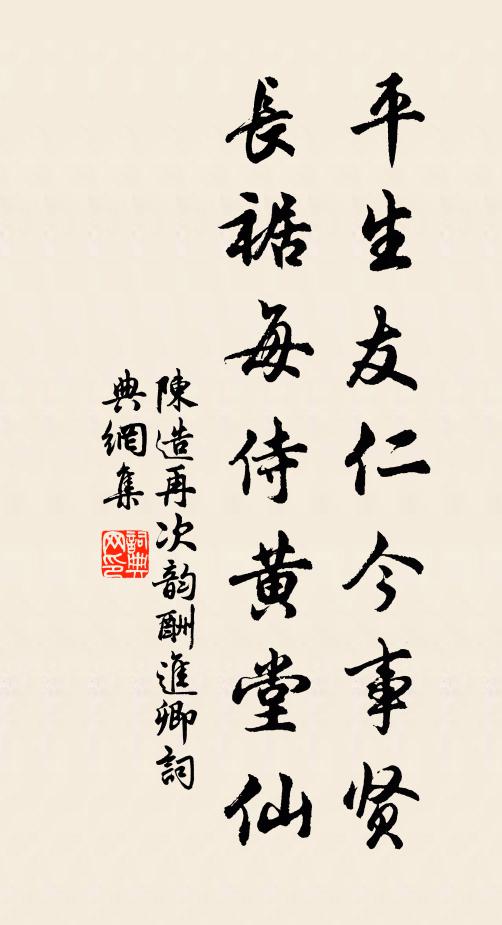 平生友仁今事贤
長裾每侍黄堂仙
陳造再次韵酬進卿詞
典網集
詞典网印